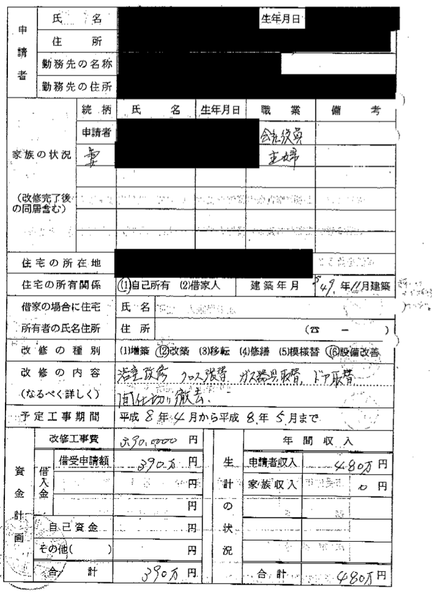 申請者
氏 名 生年月日
住 所
勤務先の名称
勤務先の住所
家族の状況
(改修完了後の同居含む)
続 柄 氏 名 生年月日 職 業 備 考
申請者 会社役員
妻 主婦
住宅の所在地
住宅の所有関係 (1)自己所有 (2)借家人 建築年月 S49.年11月建築
借家の場合に住宅所有者の氏名住所 氏 名
住 所 (☎ − )
改修の種別 (1)増築 (2)改築 (3)移転 (4)修繕 (5)模様替 (6)設備改善
改修の内容 浴室改修 クロス張替 ガス器具取替 ドア取替
(なるべく詳しく) 間仕切り撤去
予定工事期間 平成8年4月から平成8年5月まで
資金計画
改修工事費 3,900,000円
借入金 借受申請額 390万円
円
円
自己資金 円
その他( ) 円
合 計 390万円
生計の状況
年間収入
申請者収入 480万円
家族収入 0円
合 計 480万円